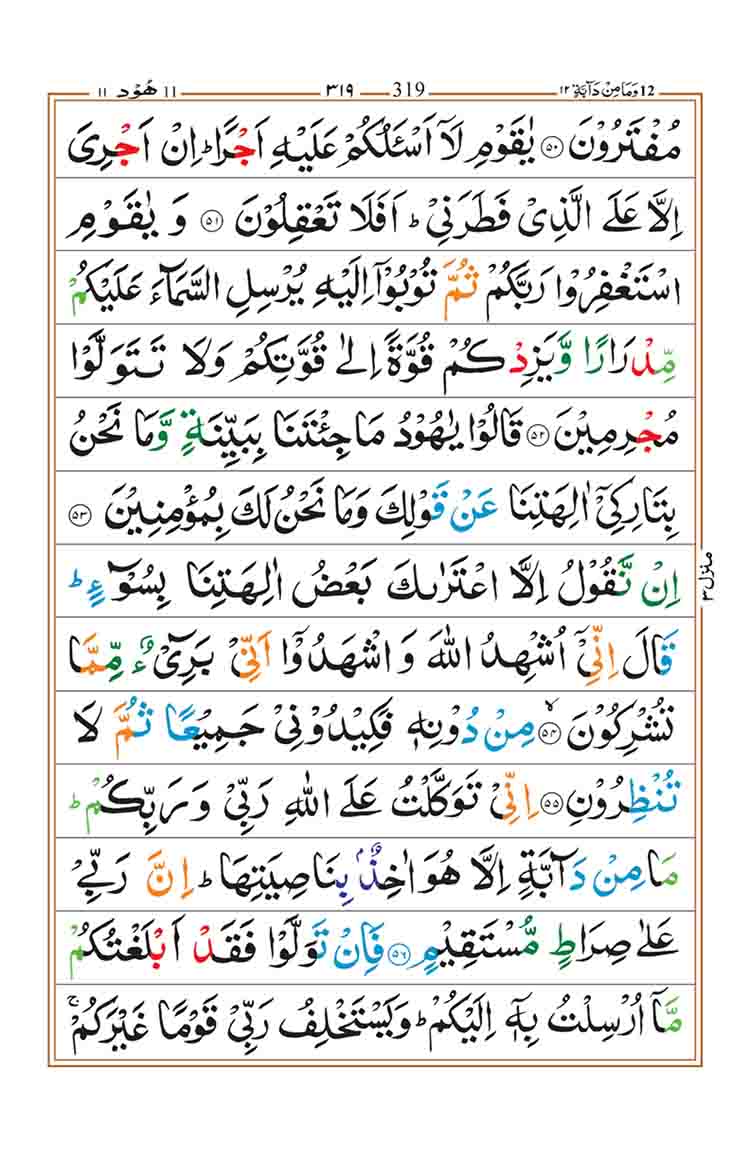 ١١ هُوْد 11 ٣١٩ 319 وَمَا مِنْ دَآبَّةٍ ١٢ 12
مُفْتَرُوْنَ ۝٥٠ يٰقَوْمِ لَاۤ اَسْـَٔلُكُمْ عَلَيْهِ اَجْرًا ؕ اِنْ اَجْرِىَ
اِلَّا عَلَى الَّذِىْ فَطَرَنِىْ ؕ اَفَلَا تَعْقِلُوْنَ ۝٥١ وَ يٰقَوْمِ
اسْتَغْفِرُوْا رَبَّكُمْ ثُمَّ تُوْبُوْۤا اِلَيْهِ يُرْسِلِ السَّمَآءَ عَلَيْكُمْ
مِّدْرَارًا وَّيَزِدْكُمْ قُوَّةً اِلٰى قُوَّتِكُمْ وَلَا تَتَوَلَّوْا
مُجْرِمِيْنَ ۝٥٢ قَالُوْا يٰهُوْدُ مَا جِئْتَنَا بِبَيِّنَةٍ وَّمَا نَحْنُ
بِتَارِكِىْۤ اٰلِهَتِنَا عَنْ قَوْلِكَ وَمَا نَحْنُ لَكَ بِمُؤْمِنِيْنَ ۝٥٣
اِنْ نَّقُوْلُ اِلَّا اعْتَرٰٮكَ بَعْضُ اٰلِهَتِنَا بِسُوْٓءٍ ؕ
قَالَ اِنِّىْۤ اُشْهِدُ اللّٰهَ وَ اشْهَدُوْۤا اَنِّىْ بَرِىْٓءٌ مِّمَّا
تُشْرِكُوْنَ ۙ۝٥٤ مِنْ دُوْنِهٖ فَكِيْدُوْنِىْ جَمِيْعًا ثُمَّ لَا
تُنْظِرُوْنِ ۝٥٥ اِنِّىْ تَوَكَّلْتُ عَلَى اللّٰهِ رَبِّىْ وَ رَبِّكُمْ ؕ
مَا مِنْ دَآبَّةٍ اِلَّا هُوَ اٰخِذٌۢ بِنَاصِيَتِهَا ؕ اِنَّ رَبِّىْ
عَلٰى صِرَاطٍ مُّسْتَقِيْمٍ ۝٥٦ فَاِنْ تَوَلَّوْا فَقَدْ اَبْلَغْتُكُمْ
مَّاۤ اُرْسِلْتُ بِهٖۤ اِلَيْكُمْ ؕ وَيَسْتَخْلِفُ رَبِّىْ قَوْمًا غَيْرَكُمْ ۚ
منزل ٣